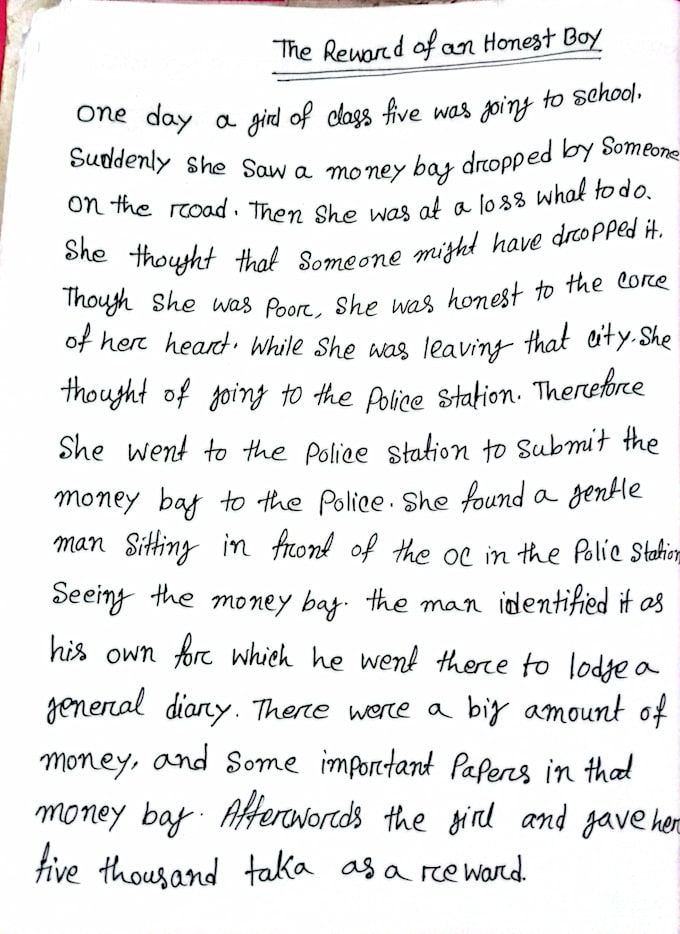 The Reward of an Honest Boy
One day a girl of class five was going to school.
Suddenly She Saw a money bag dropped by Someone
on the road. Then She was at a loss what to do.
She thought that Someone might have dropped it.
Though She was Poor, She was honest to the core
of her heart. While She was leaving that city. She
thought of going to the Police Station. Therefore
She went to the Police Station to Submit the
money bag to the Police. She found a gentle
man Sitting in front of the OC in the Polic Station
Seeing the money bag. the man identified it as
his own for which he went there to lodge a
general diary. There were a big amount of
money, and Some important Papers in that
money bag. Afterwords the girl and gave her
five thousand taka as a reward.